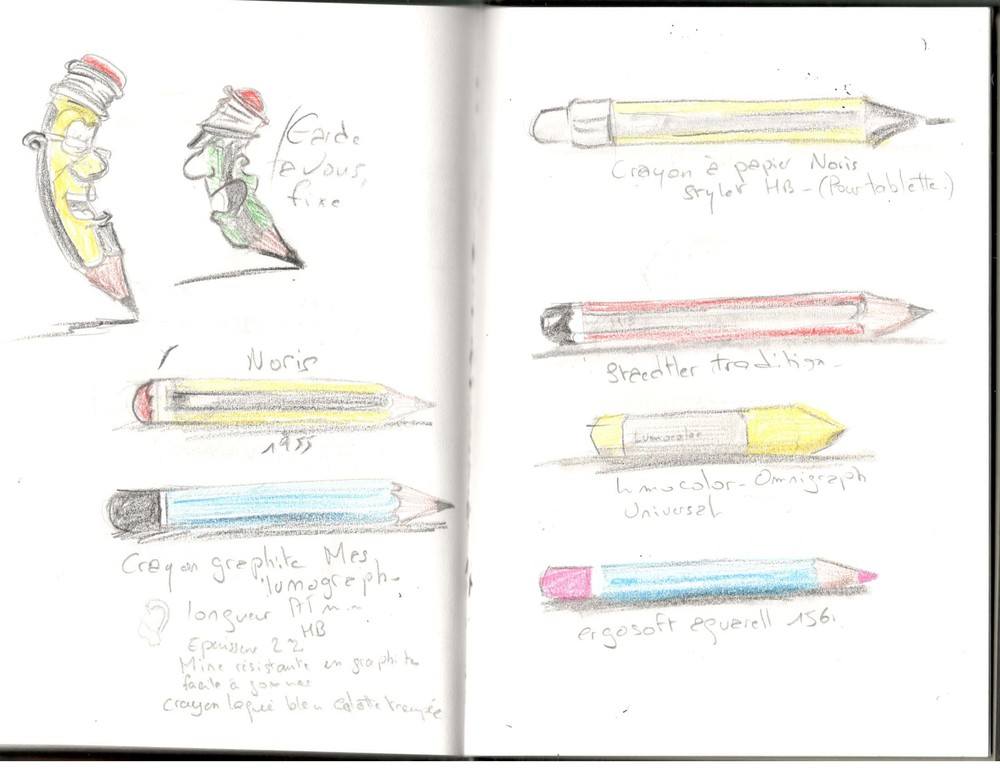 Garde
à vous,
fixe
Noris
1955
Crayon graphite Mars
lumograph
longueur
HB
Epaisseur 2 2
Mine résistante en graphite
facile à gommer
crayon laqué bleu calotte trempée
Crayon à papier Noris
styler HB - (Pour tablette.)
Staedtler tradition -
Lumocolor
lumocolor - Omnigraph
Universal
ergosoft aquarell 156.